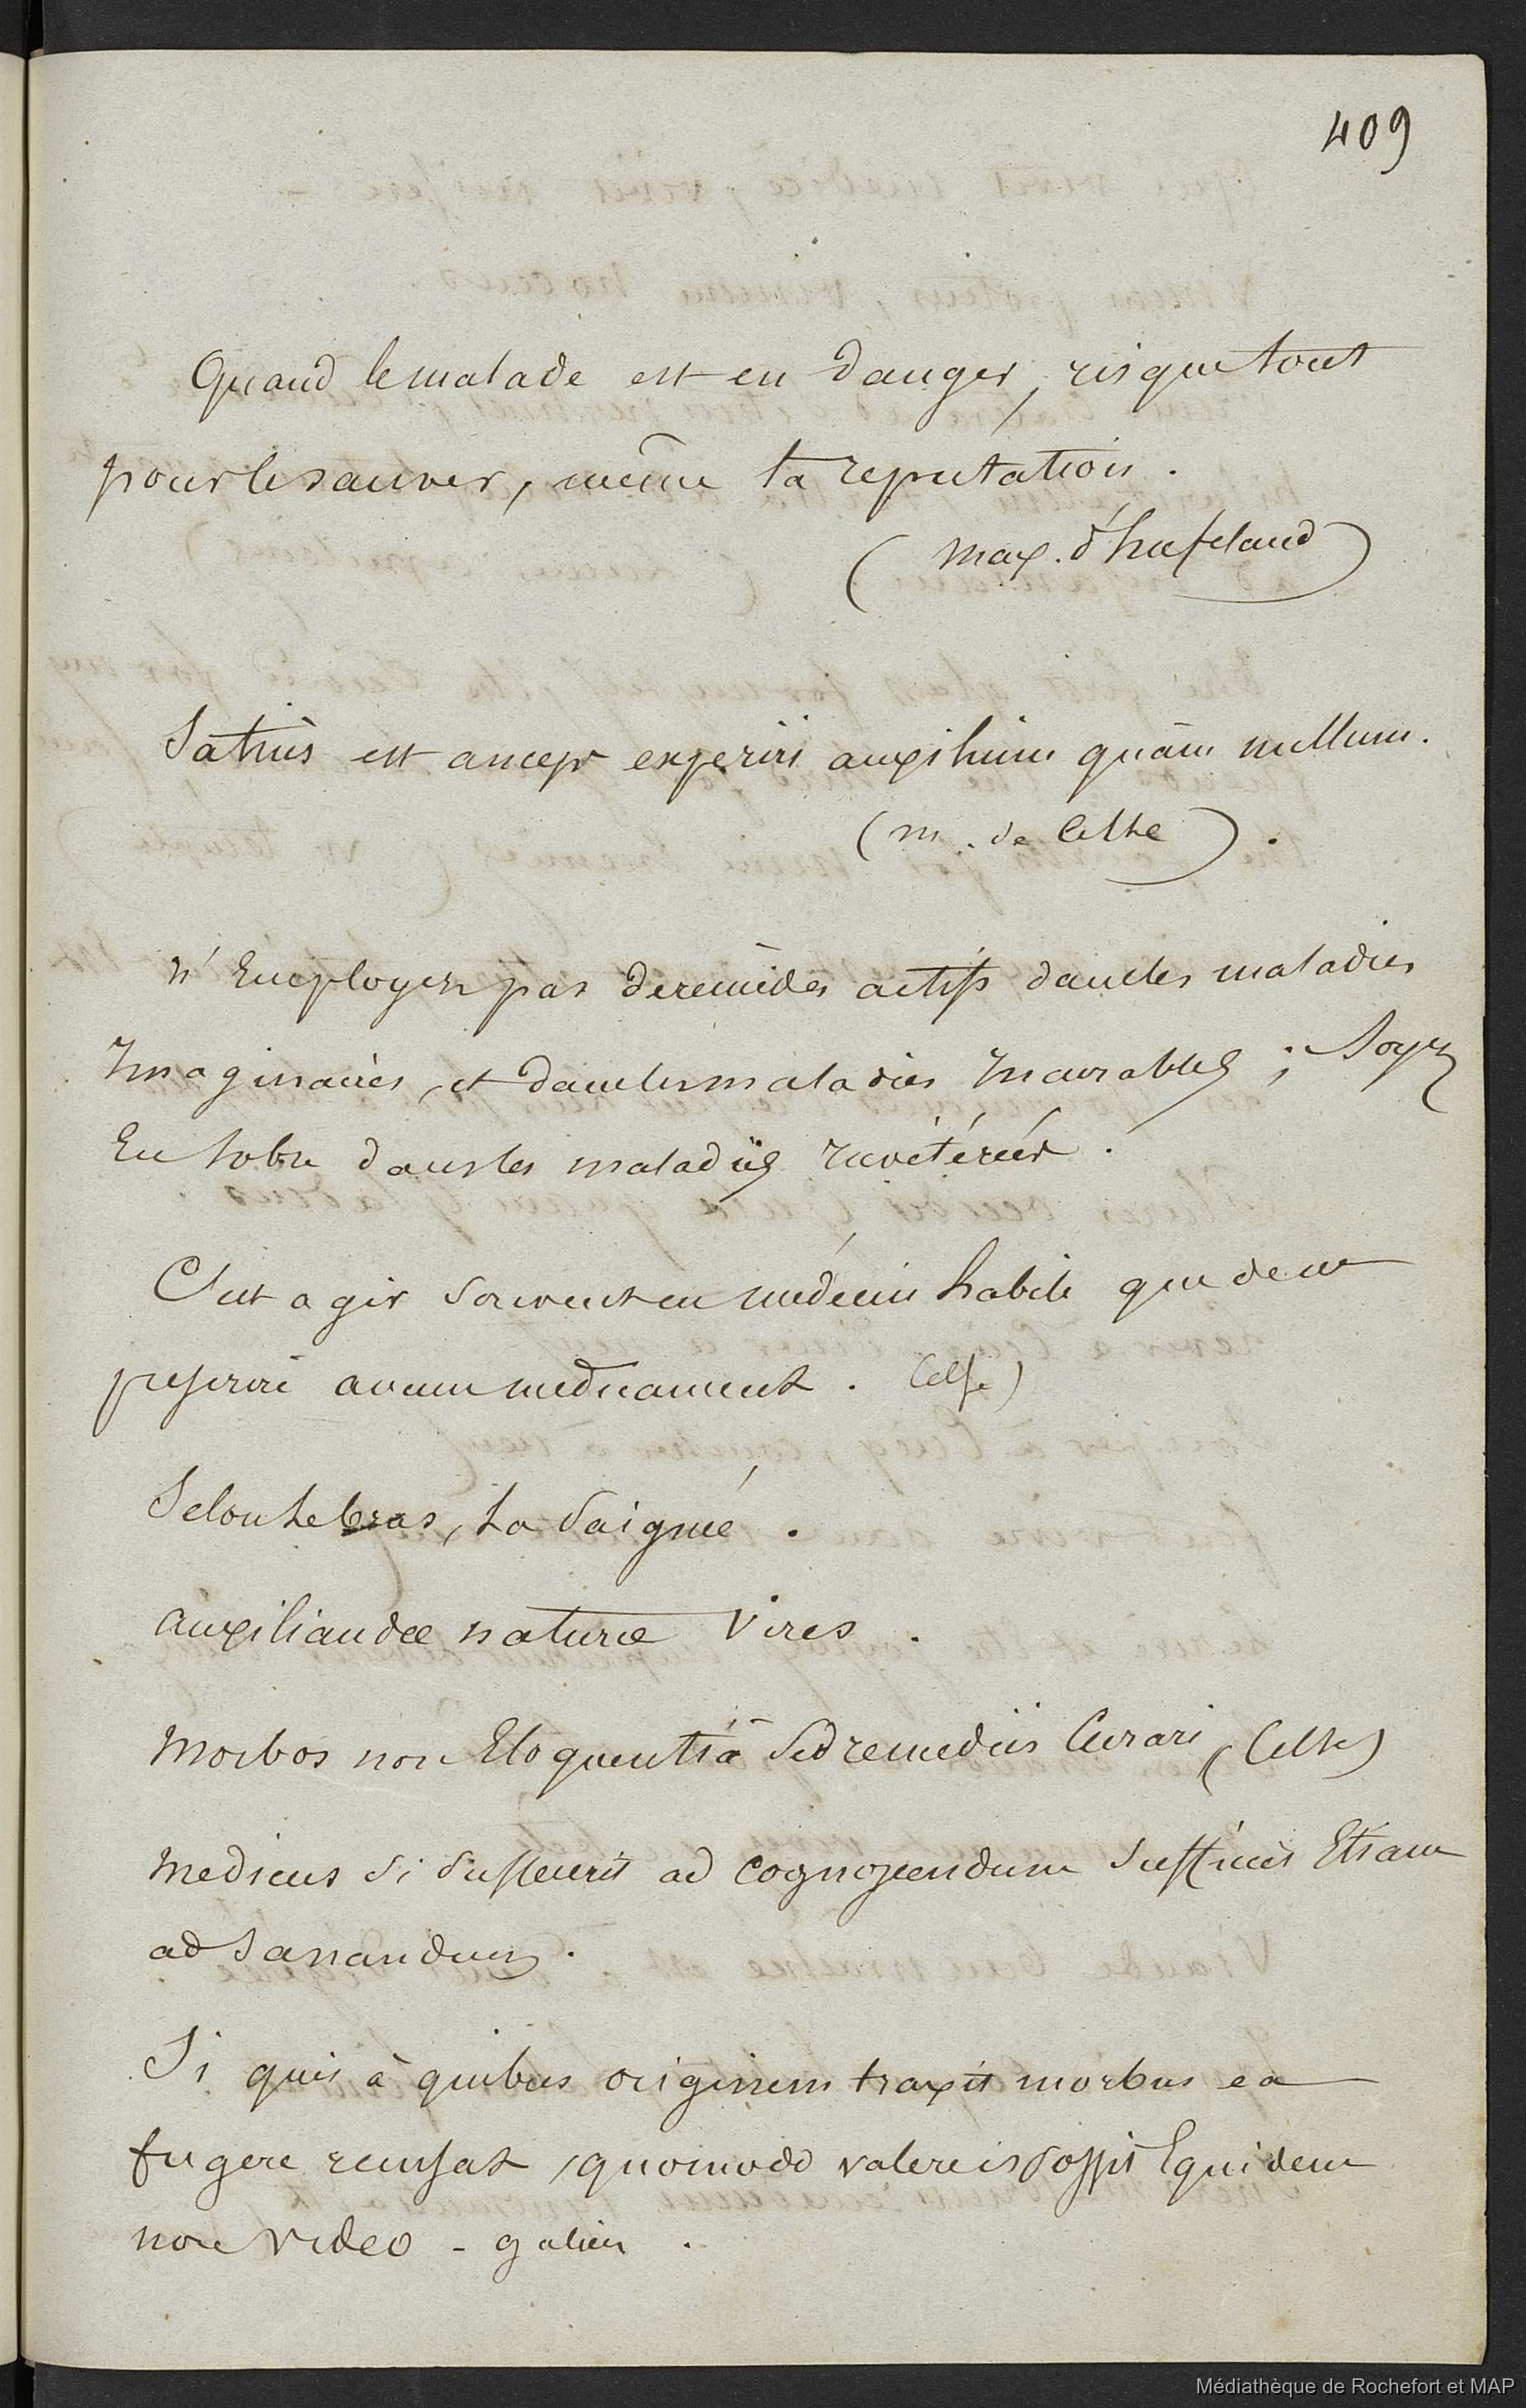 409
Quand le malade est en danger, risque tout
pour le sauver, même ta reputation.
(max. d'hufeland)
Satiùs est anceps experiri auxilium quàm nullum.
(m. de Celse).
n'Employez pas de remèdes actifs dans les maladies
Imaginaires, et dans les maladies Incurables ; Soyez
En sobre dans les maladies invétérées.
C'est agir souvent en médecin habile que de ne
prescrire aucun medicament. Celse)
Selon le bras, la Saignée.
auxiliandæ naturæ Vires.
Morbos non Eloquentiâ Sed remediis Curari (Celse)
Medicus Si Suffecerit ad cognoscendum Sufficiet Etiam
ad Sanandum.
Si quis à quibus originem traxit morbus ea
fugere recusat, quomodo valere is possit Equidem
non video - galien.
Médiathèque de Rochefort et MAP